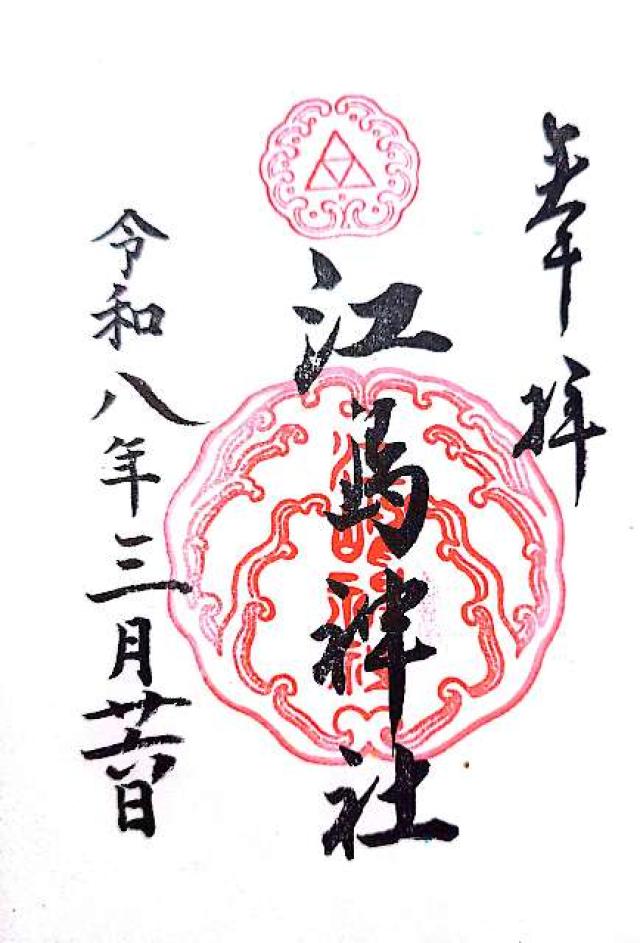 奉拝
江島神社
令和八年三月廿六日